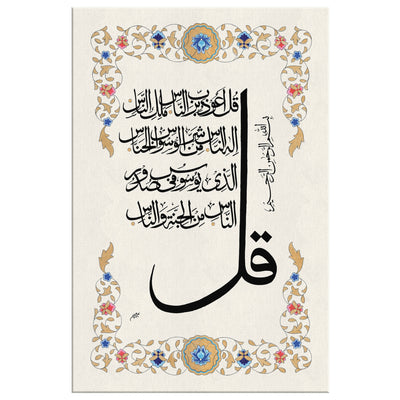 بسم الله الرحمن الرحيم
قل اعوذ برب الناس ملك الناس
اله الناس من شر الوسواس الخناس
الذي يوسوس في صدور
الناس من الجنة والناس
قل